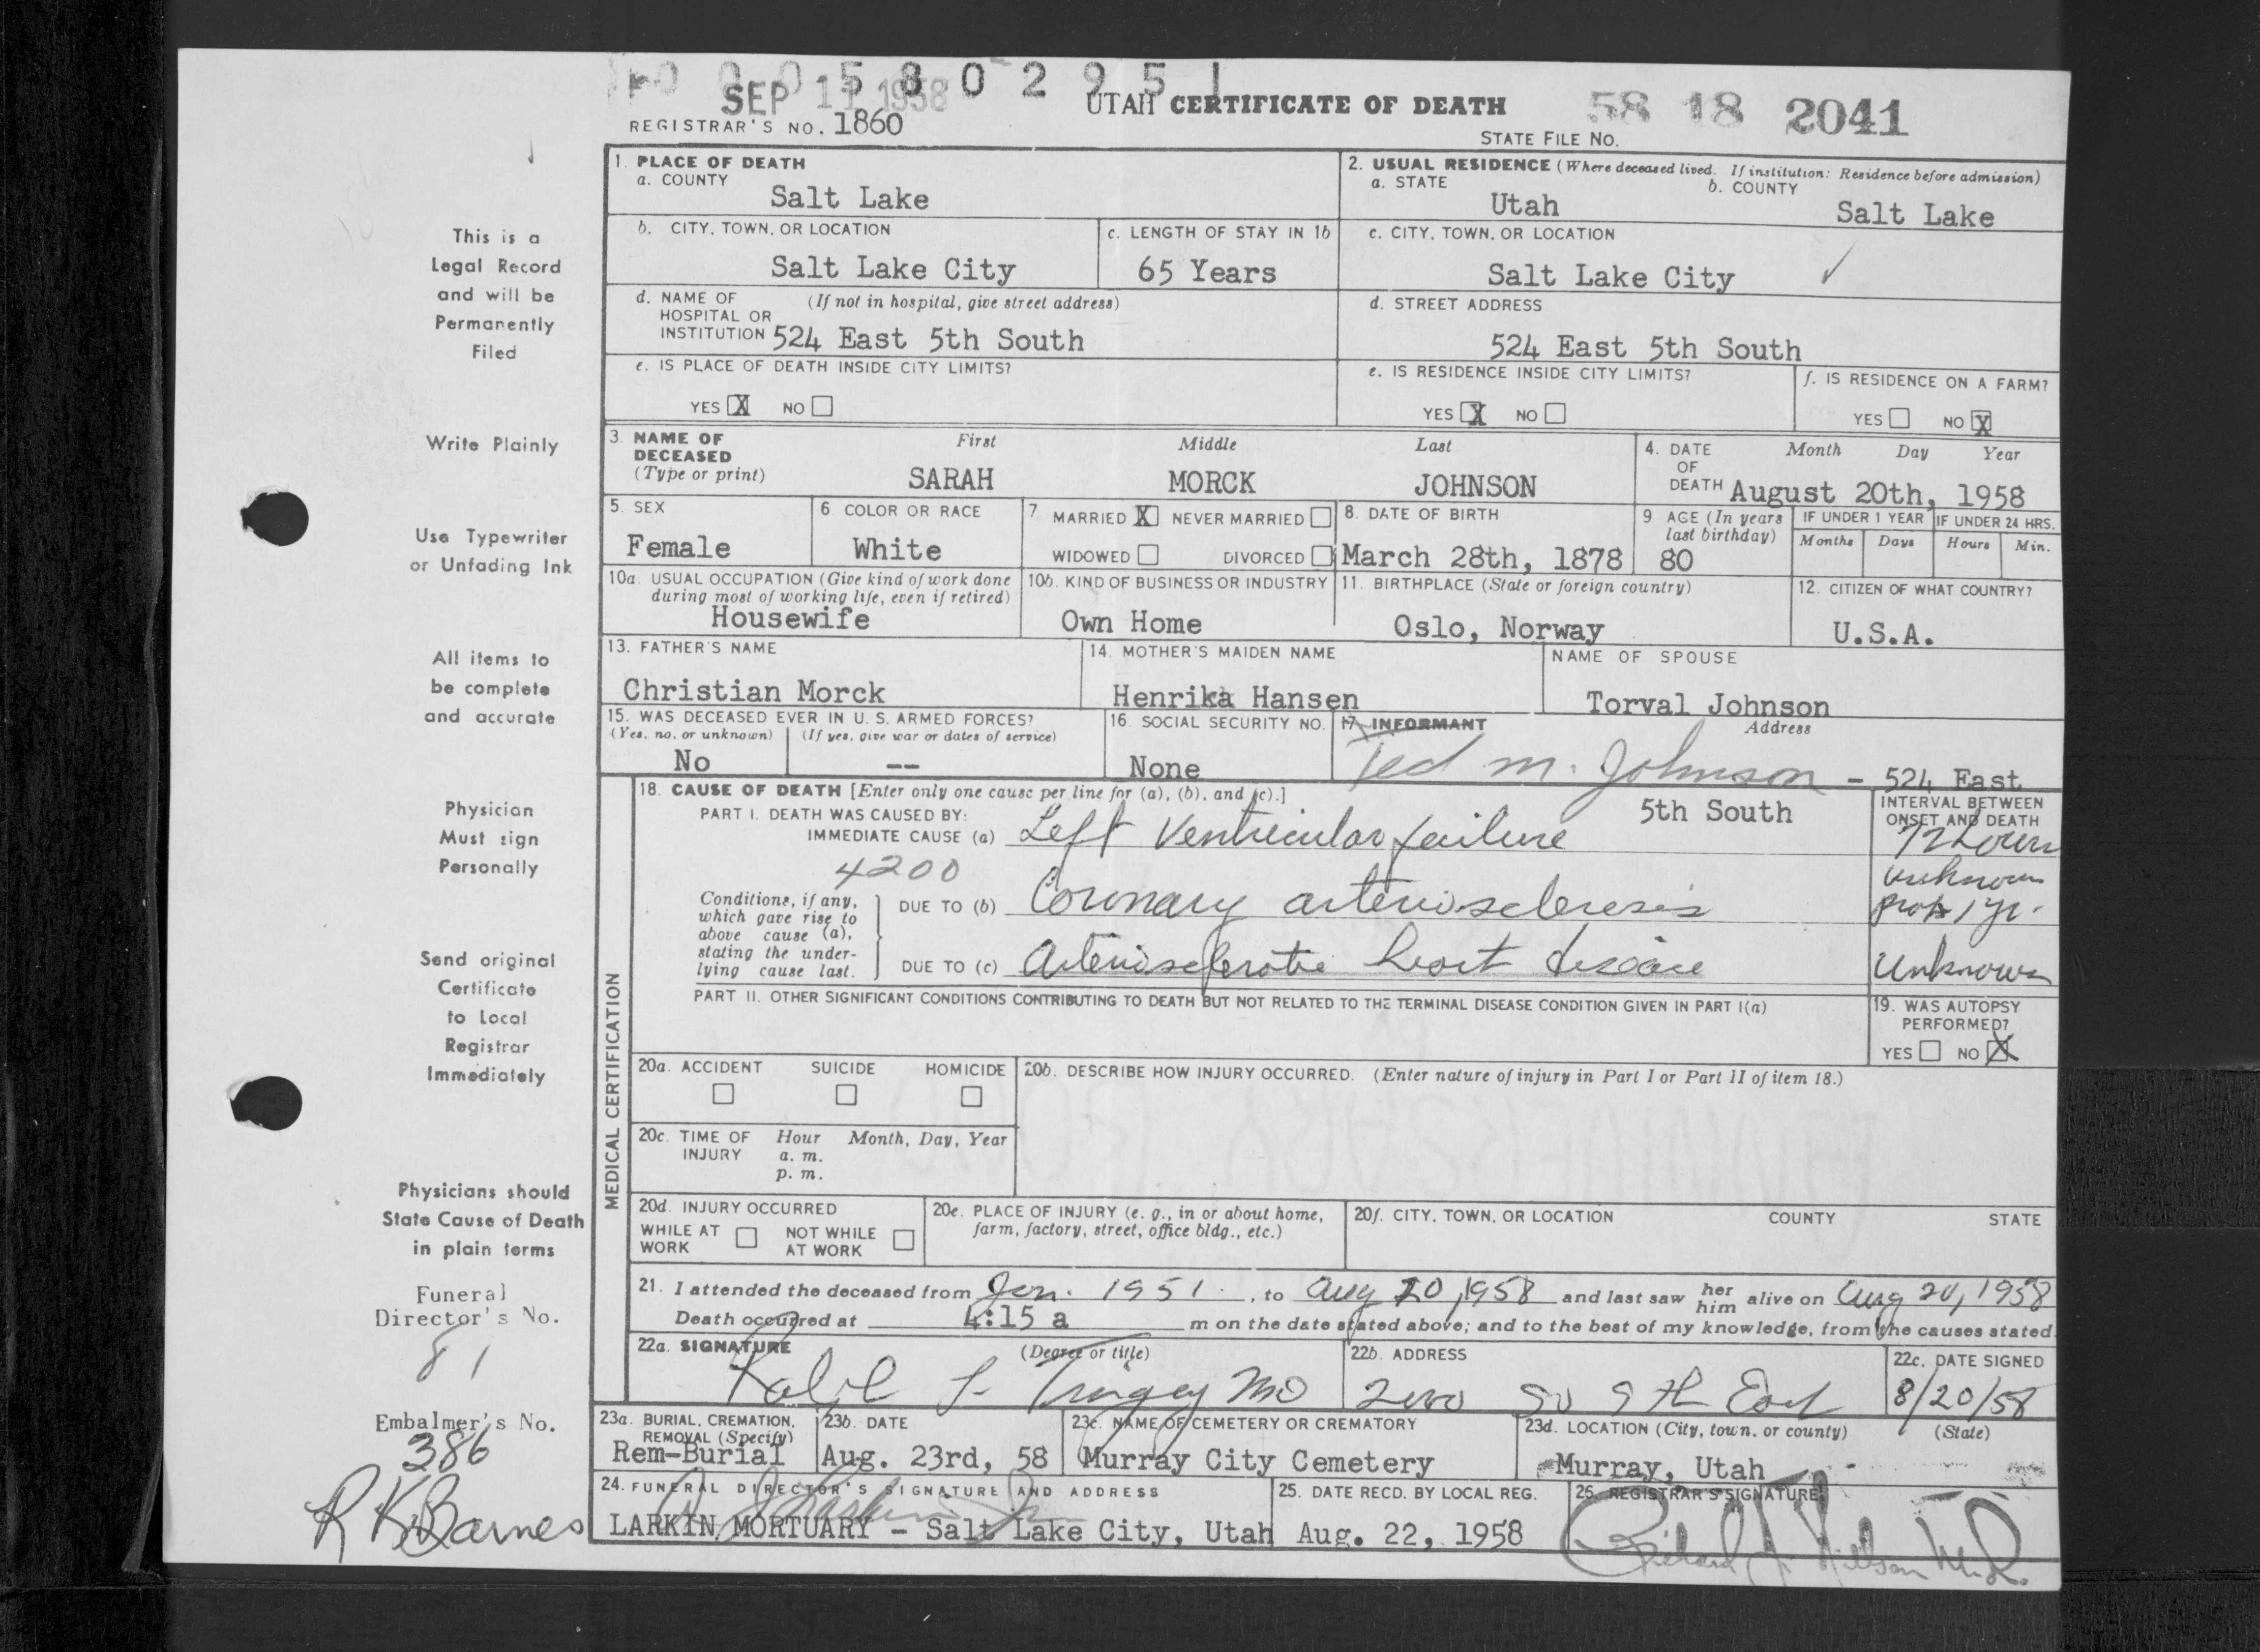 0 0 0 5 8 0 2 9 5 1
SEP 11 1958
UTAH CERTIFICATE OF DEATH
58 18 2041
REGISTRAR'S NO. 1860
STATE FILE NO.
1. PLACE OF DEATH
a. COUNTY
Salt Lake
2. USUAL RESIDENCE (Where deceased lived. If institution: Residence before admission)
a. STATE
Utah
b. COUNTY
Salt Lake
b. CITY, TOWN, OR LOCATION
Salt Lake City
c. LENGTH OF STAY IN 1b
65 Years
c. CITY, TOWN, OR LOCATION
Salt Lake City
d. NAME OF HOSPITAL OR INSTITUTION (If not in hospital, give street address)
524 East 5th South
d. STREET ADDRESS
524 East 5th South
e. IS PLACE OF DEATH INSIDE CITY LIMITS?
YES X NO
e. IS RESIDENCE INSIDE CITY LIMITS?
YES X NO
f. IS RESIDENCE ON A FARM?
YES NO X
3. NAME OF DECEASED (Type or print)
First Middle Last
SARAH MORCK JOHNSON
4. DATE OF DEATH
Month Day Year
August 20th, 1958
5. SEX
Female
6 COLOR OR RACE
White
7 MARRIED X NEVER MARRIED
WIDOWED DIVORCED
8. DATE OF BIRTH
March 28th, 1878
9 AGE (In years last birthday)
80
IF UNDER 1 YEAR
Months Days
IF UNDER 24 HRS.
Hours Min.
10a. USUAL OCCUPATION (Give kind of work done during most of working life, even if retired)
Housewife
10b. KIND OF BUSINESS OR INDUSTRY
Own Home
11. BIRTHPLACE (State or foreign country)
Oslo, Norway
12. CITIZEN OF WHAT COUNTRY?
U.S.A.
13. FATHER'S NAME
Christian Morck
14. MOTHER'S MAIDEN NAME
Henrika Hansen
NAME OF SPOUSE
Torval Johnson
15. WAS DECEASED EVER IN U. S. ARMED FORCES?
(Yes, no, or unknown) (If yes, give war or dates of service)
No --
16. SOCIAL SECURITY NO.
None
17. INFORMANT Address
Ted M. Johnson - 524 East
5th South
MEDICAL CERTIFICATION
18. CAUSE OF DEATH [Enter only one cause per line for (a), (b), and (c).]
PART I. DEATH WAS CAUSED BY:
IMMEDIATE CAUSE (a) Left Ventricular failure
INTERVAL BETWEEN ONSET AND DEATH
72 hours
4200
Conditions, if any, which gave rise to above cause (a), stating the underlying cause last.
DUE TO (b) Coronary arteriosclerosis
unknown
prob 1 yr.
DUE TO (c) Arteriosclerotic heart disease
Unknown
PART II. OTHER SIGNIFICANT CONDITIONS CONTRIBUTING TO DEATH BUT NOT RELATED TO THE TERMINAL DISEASE CONDITION GIVEN IN PART I(a)
19. WAS AUTOPSY PERFORMED?
YES NO X
20a. ACCIDENT SUICIDE HOMICIDE
20b. DESCRIBE HOW INJURY OCCURRED. (Enter nature of injury in Part I or Part II of item 18.)
20c. TIME OF INJURY Hour Month, Day, Year
a. m.
p. m.
20d. INJURY OCCURRED
WHILE AT WORK NOT WHILE AT WORK
20e. PLACE OF INJURY (e. g., in or about home, farm, factory, street, office bldg., etc.)
20f. CITY, TOWN, OR LOCATION COUNTY STATE
21. I attended the deceased from Jan. 1951, to Aug 20, 1958 and last saw her him alive on Aug 20, 1958
Death occurred at 4:15 a m on the date stated above; and to the best of my knowledge, from the causes stated.
22a. SIGNATURE (Degree or title)
Tingey MD
22b. ADDRESS
So 9th East
22c. DATE SIGNED
8/20/58
23a. BURIAL, CREMATION, REMOVAL (Specify)
Rem-Burial
23b. DATE
Aug. 23rd, 58
23c. NAME OF CEMETERY OR CREMATORY
Murray City Cemetery
23d. LOCATION (City, town, or county) (State)
Murray, Utah
24. FUNERAL DIRECTOR'S SIGNATURE AND ADDRESS
LARKIN MORTUARY - Salt Lake City, Utah
25. DATE RECD. BY LOCAL REG.
Aug. 22, 1958
26. REGISTRAR'S SIGNATURE
This is a
Legal Record
and will be
Permanently
Filed
Write Plainly
Use Typewriter
or Unfading Ink
All items to
be complete
and accurate
Physician
Must sign
Personally
Send original
Certificate
to Local
Registrar
Immediately
Physicians should
State Cause of Death
in plain terms
Funeral
Director's No.
81
Embalmer's No.
386
R K Barnes